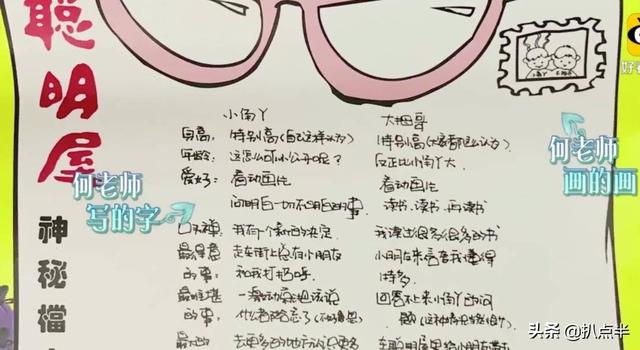 聪明屋
神秘檔
何老师
写的字
何老师
画的画
小俏丫 大拇哥
身高: 特别高(自己这样认为) 特别高(大家都这么认为)
年龄: 这怎么可以公开呢? 反正比小俏丫大
爱好: 看动画片 看动画片
问明白一切不明白的事 读书、读书、再读书
口头禅: 我有个新的决定. 我读过很多很多的书
最得意 走在街上总有小朋友 小朋友来信夸我懂得
的事: 和我打招呼. 特多.
最难堪 一激动 回答不上来小俏丫的问
的事: 什么都忘了(不好意思) 题(这种情况当然很少)
最大的 去更多的地方认识更多 在聪明屋里给小朋友
好看
头条 @扒点半